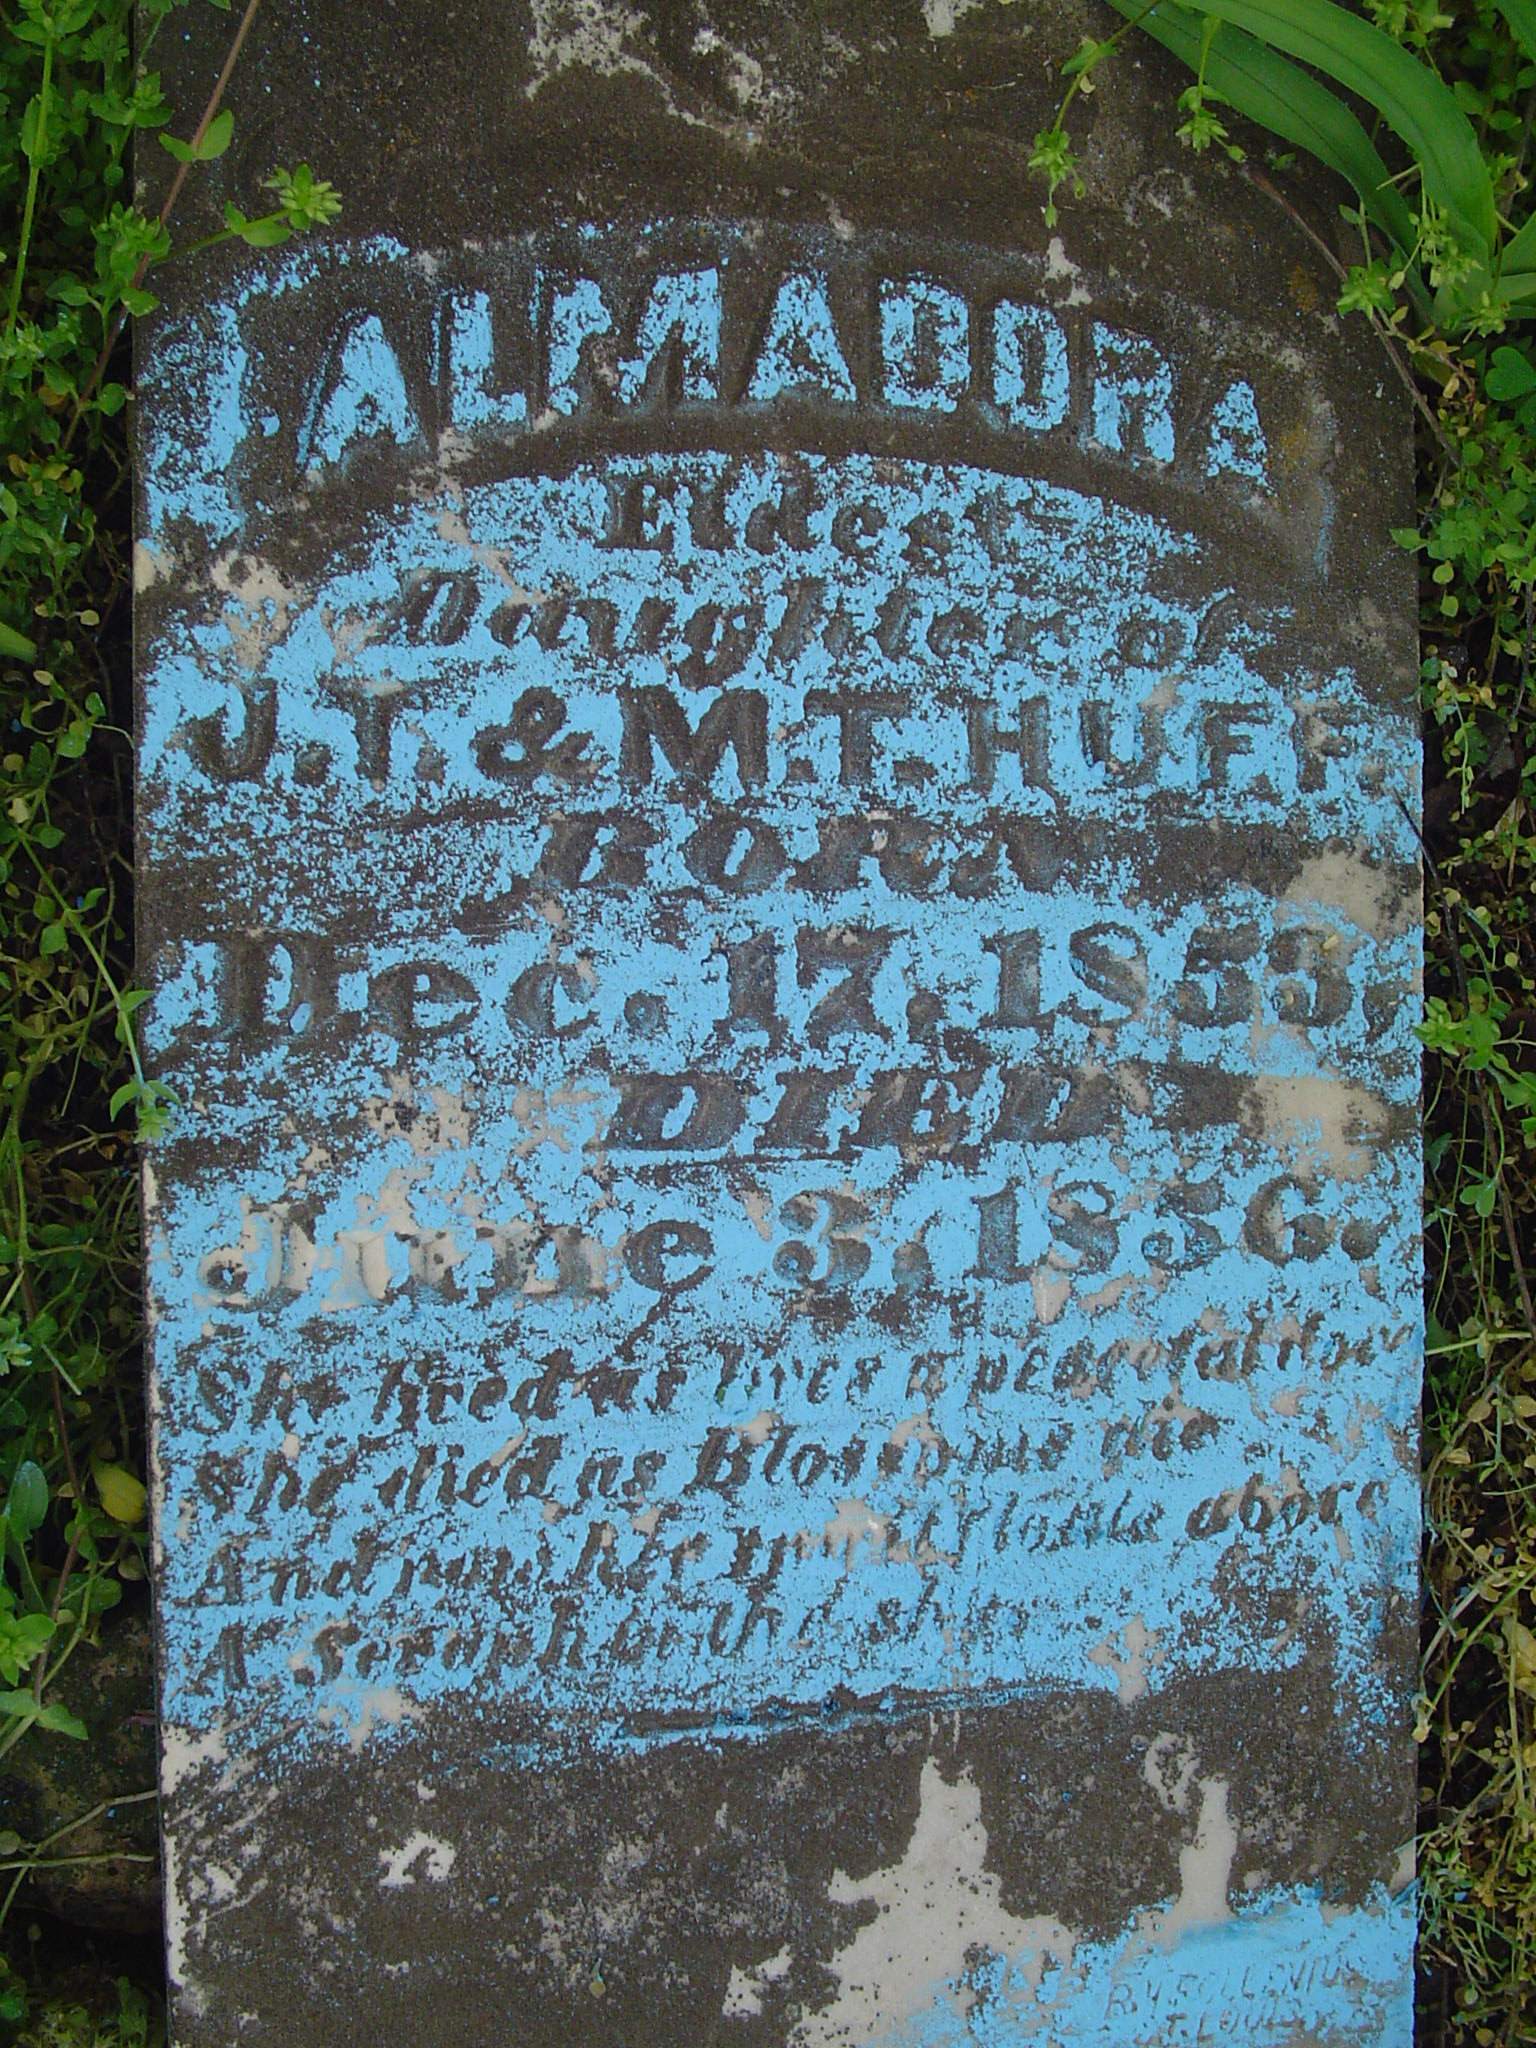 I. ALMADORA
Eldest
Daughter of
J. T. & M. T. HUFF.
BORN
Dec. 17, 1853,
DIED
June 3, 1856.
She lived as lives a peaceful
She died as Blossoms die
And now her spirit floats above
A Seraph in the sky
BY
ST. LOUIS